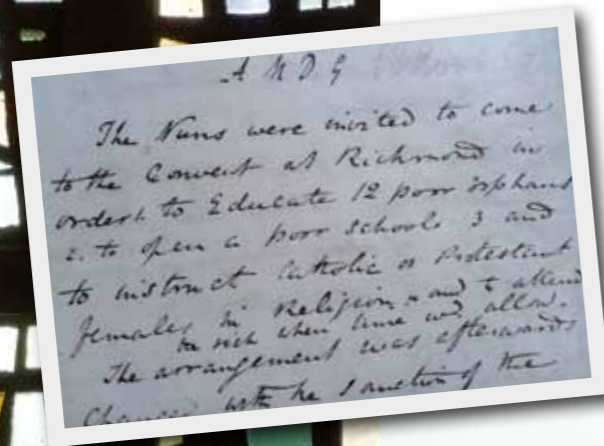 A M D G
The Nuns were invited to come
to the Convent at Richmond in
order 1. to Educate 12 poor orphans
2. to open a poor schools 3 and
to instruct Catholic or Protestant
females in Religion and to attend
the sick when time wd allow.
The arrangement was afterwards
Changed with the sanction of the